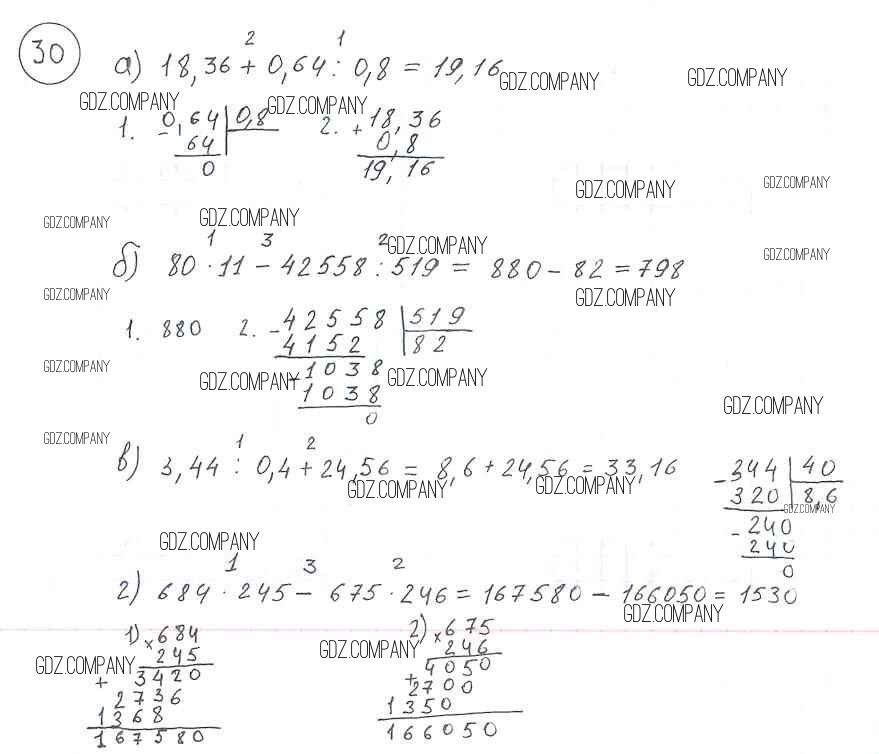 30
2 1
а) 18,36 + 0,64 : 0,8 = 19,16
GDZ.COMPANY GDZ.COMPANY
GDZ.COMPANY GDZ.COMPANY
1. 0,64 0,8 2. + 18,36
- 64 0,8
0 19,16
GDZ.COMPANY GDZ.COMPANY
GDZ.COMPANY GDZ.COMPANY
1 3 2 GDZ.COMPANY GDZ.COMPANY
б) 80 · 11 - 42558 : 519 = 880 - 82 = 798
GDZ.COMPANY GDZ.COMPANY
1. 880 2. - 42558 519
4152 82
GDZ.COMPANY
- 1038
GDZ.COMPANY GDZ.COMPANY
1038
0
GDZ.COMPANY
GDZ.COMPANY
1 2
в) 3,44 : 0,4 + 24,56 = 8,6 + 24,56 = 33,16
- 344 40
GDZ.COMPANY GDZ.COMPANY
320 8,6
GDZ.COMPANY
- 240
240
0
GDZ.COMPANY
1 3 2
г) 684 · 245 - 675 · 246 = 167580 - 166050 = 1530
GDZ.COMPANY
1) × 684 2) × 675
245 246
GDZ.COMPANY GDZ.COMPANY
+ 3420 + 4050
2736 2700
1368 1350
167580 166050